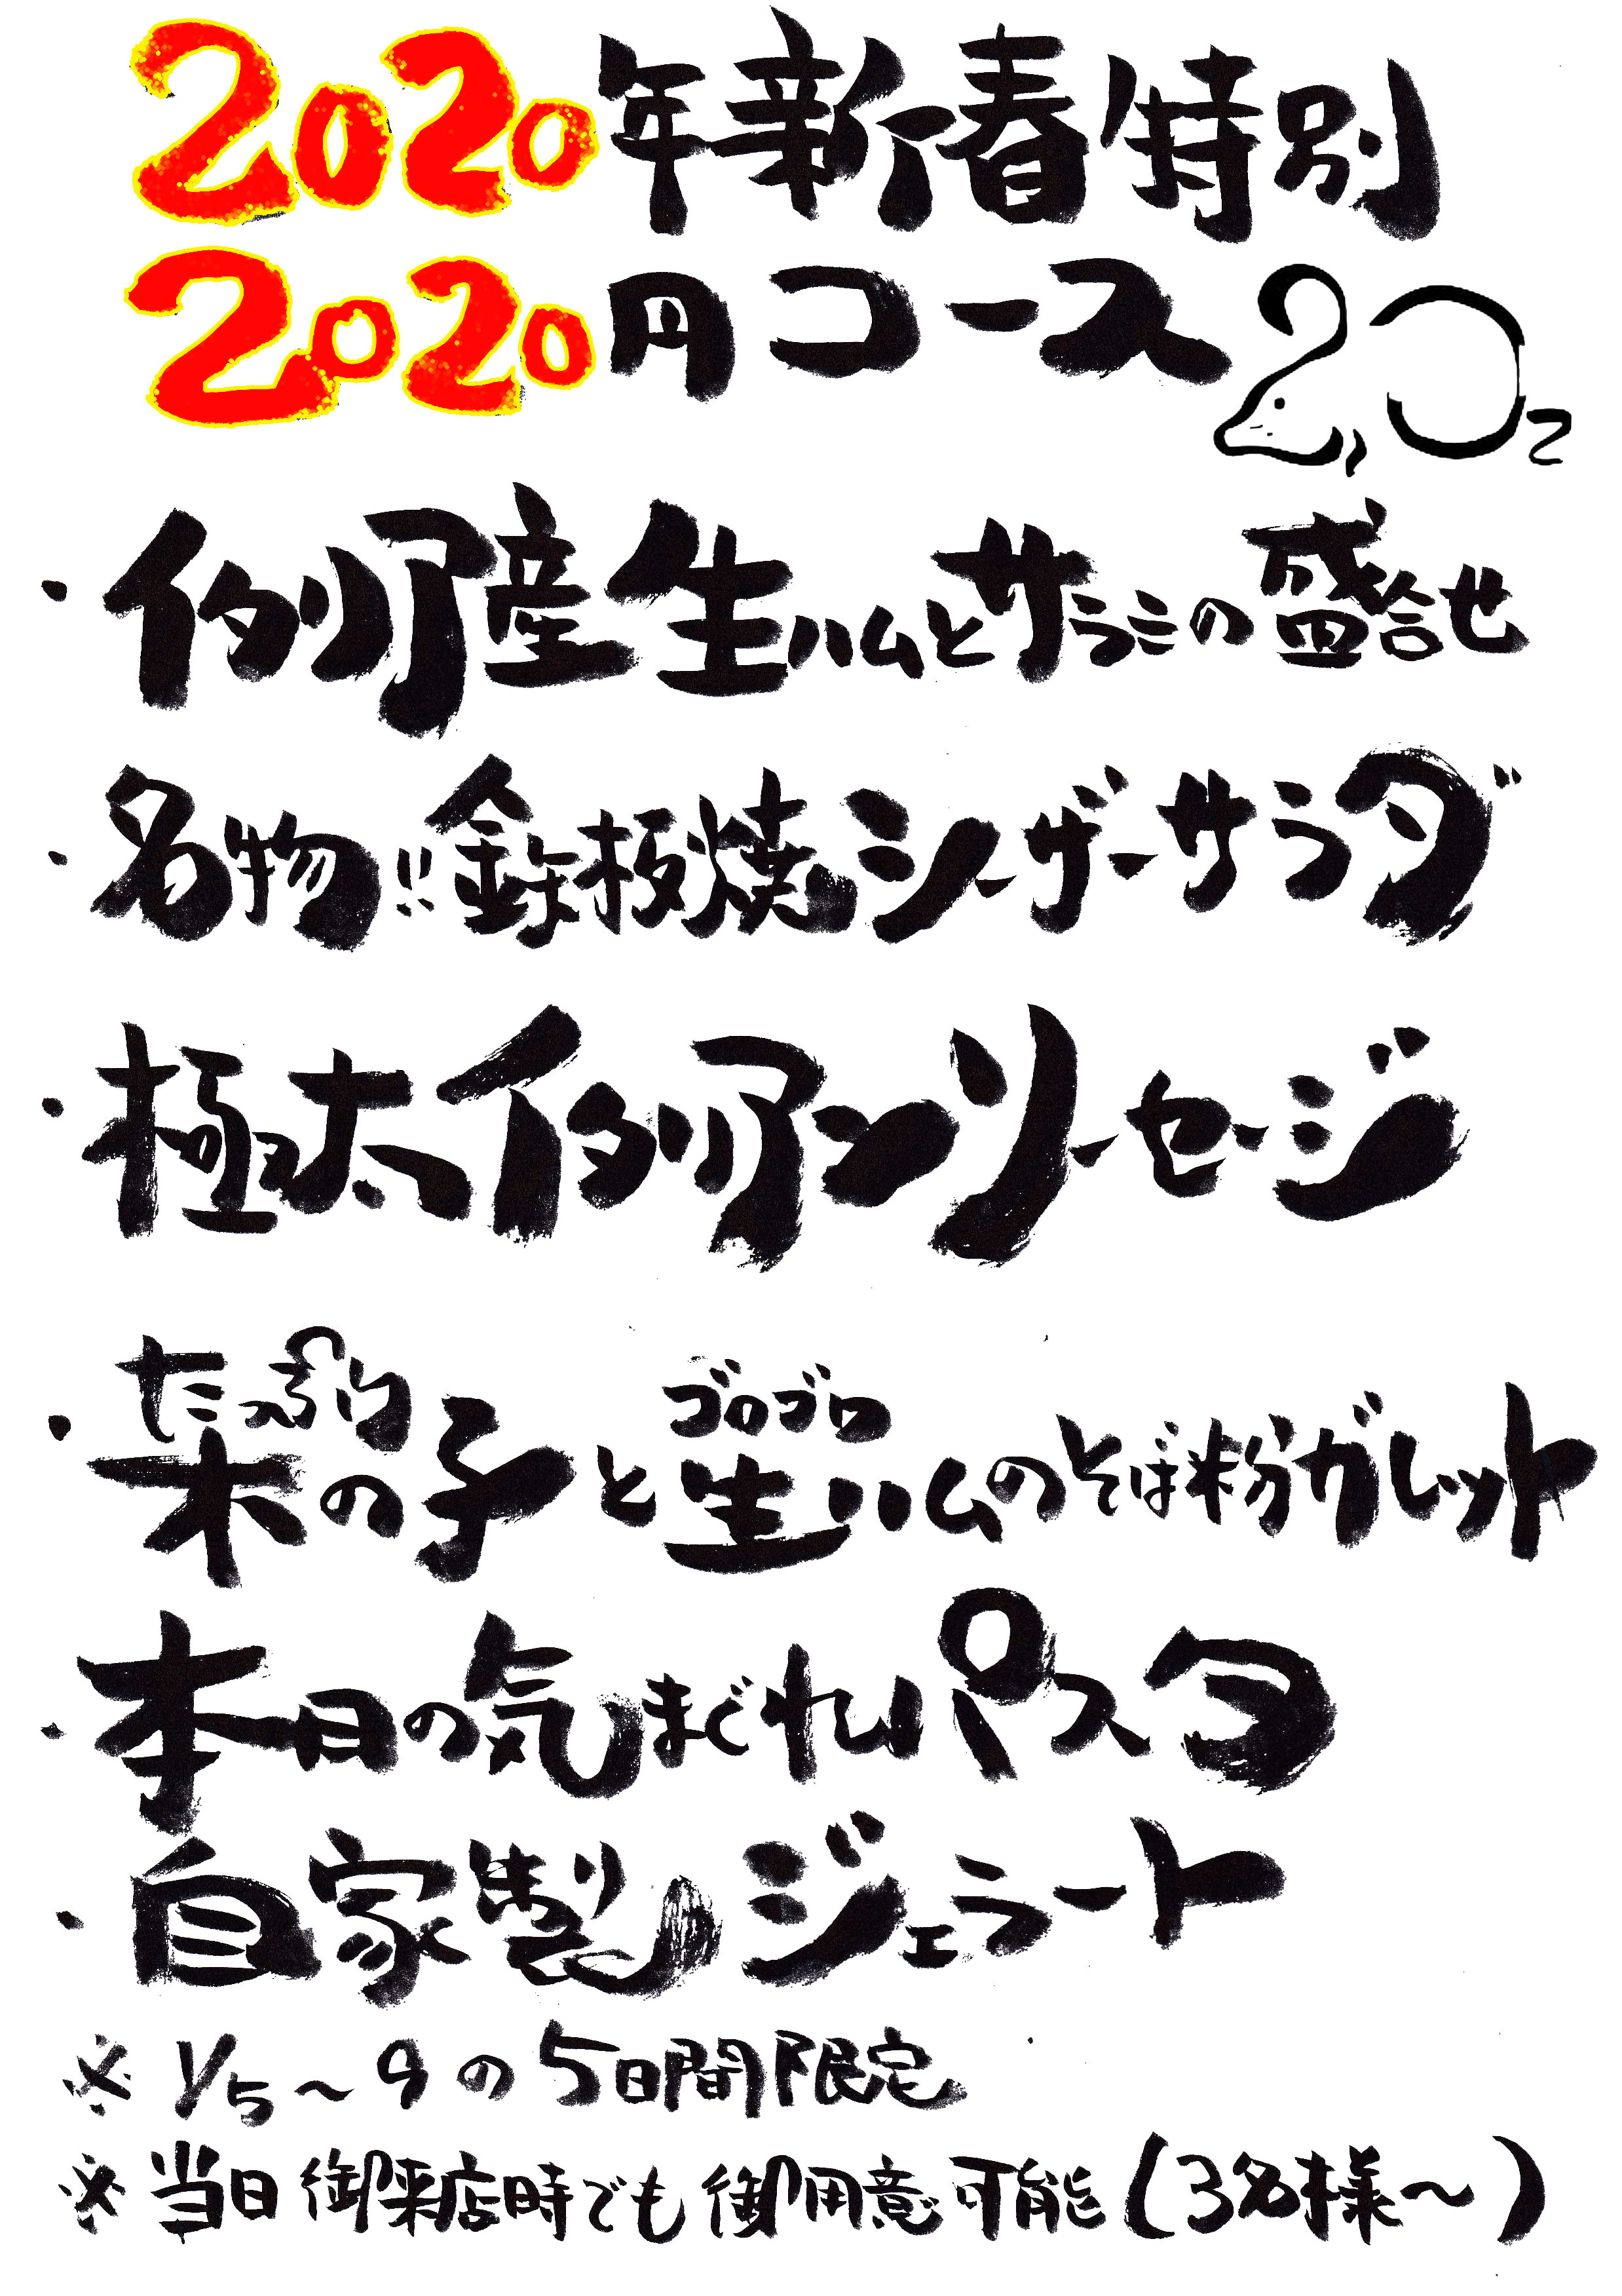 2020年新春特別
2020円コース
・イタリア産生ハムとサラミの盛合せ
・名物!!鉄板焼シーザーサラダ
・極太イタリアンソーセージ
たっぷり ゴロゴロ
・木の子と生ハムのそば粉ガレット
・本日の気まぐれパスタ
・自家製ジェラート
※1/5～9の5日間限定
※当日御来店時でも御用意可能(3名様～)